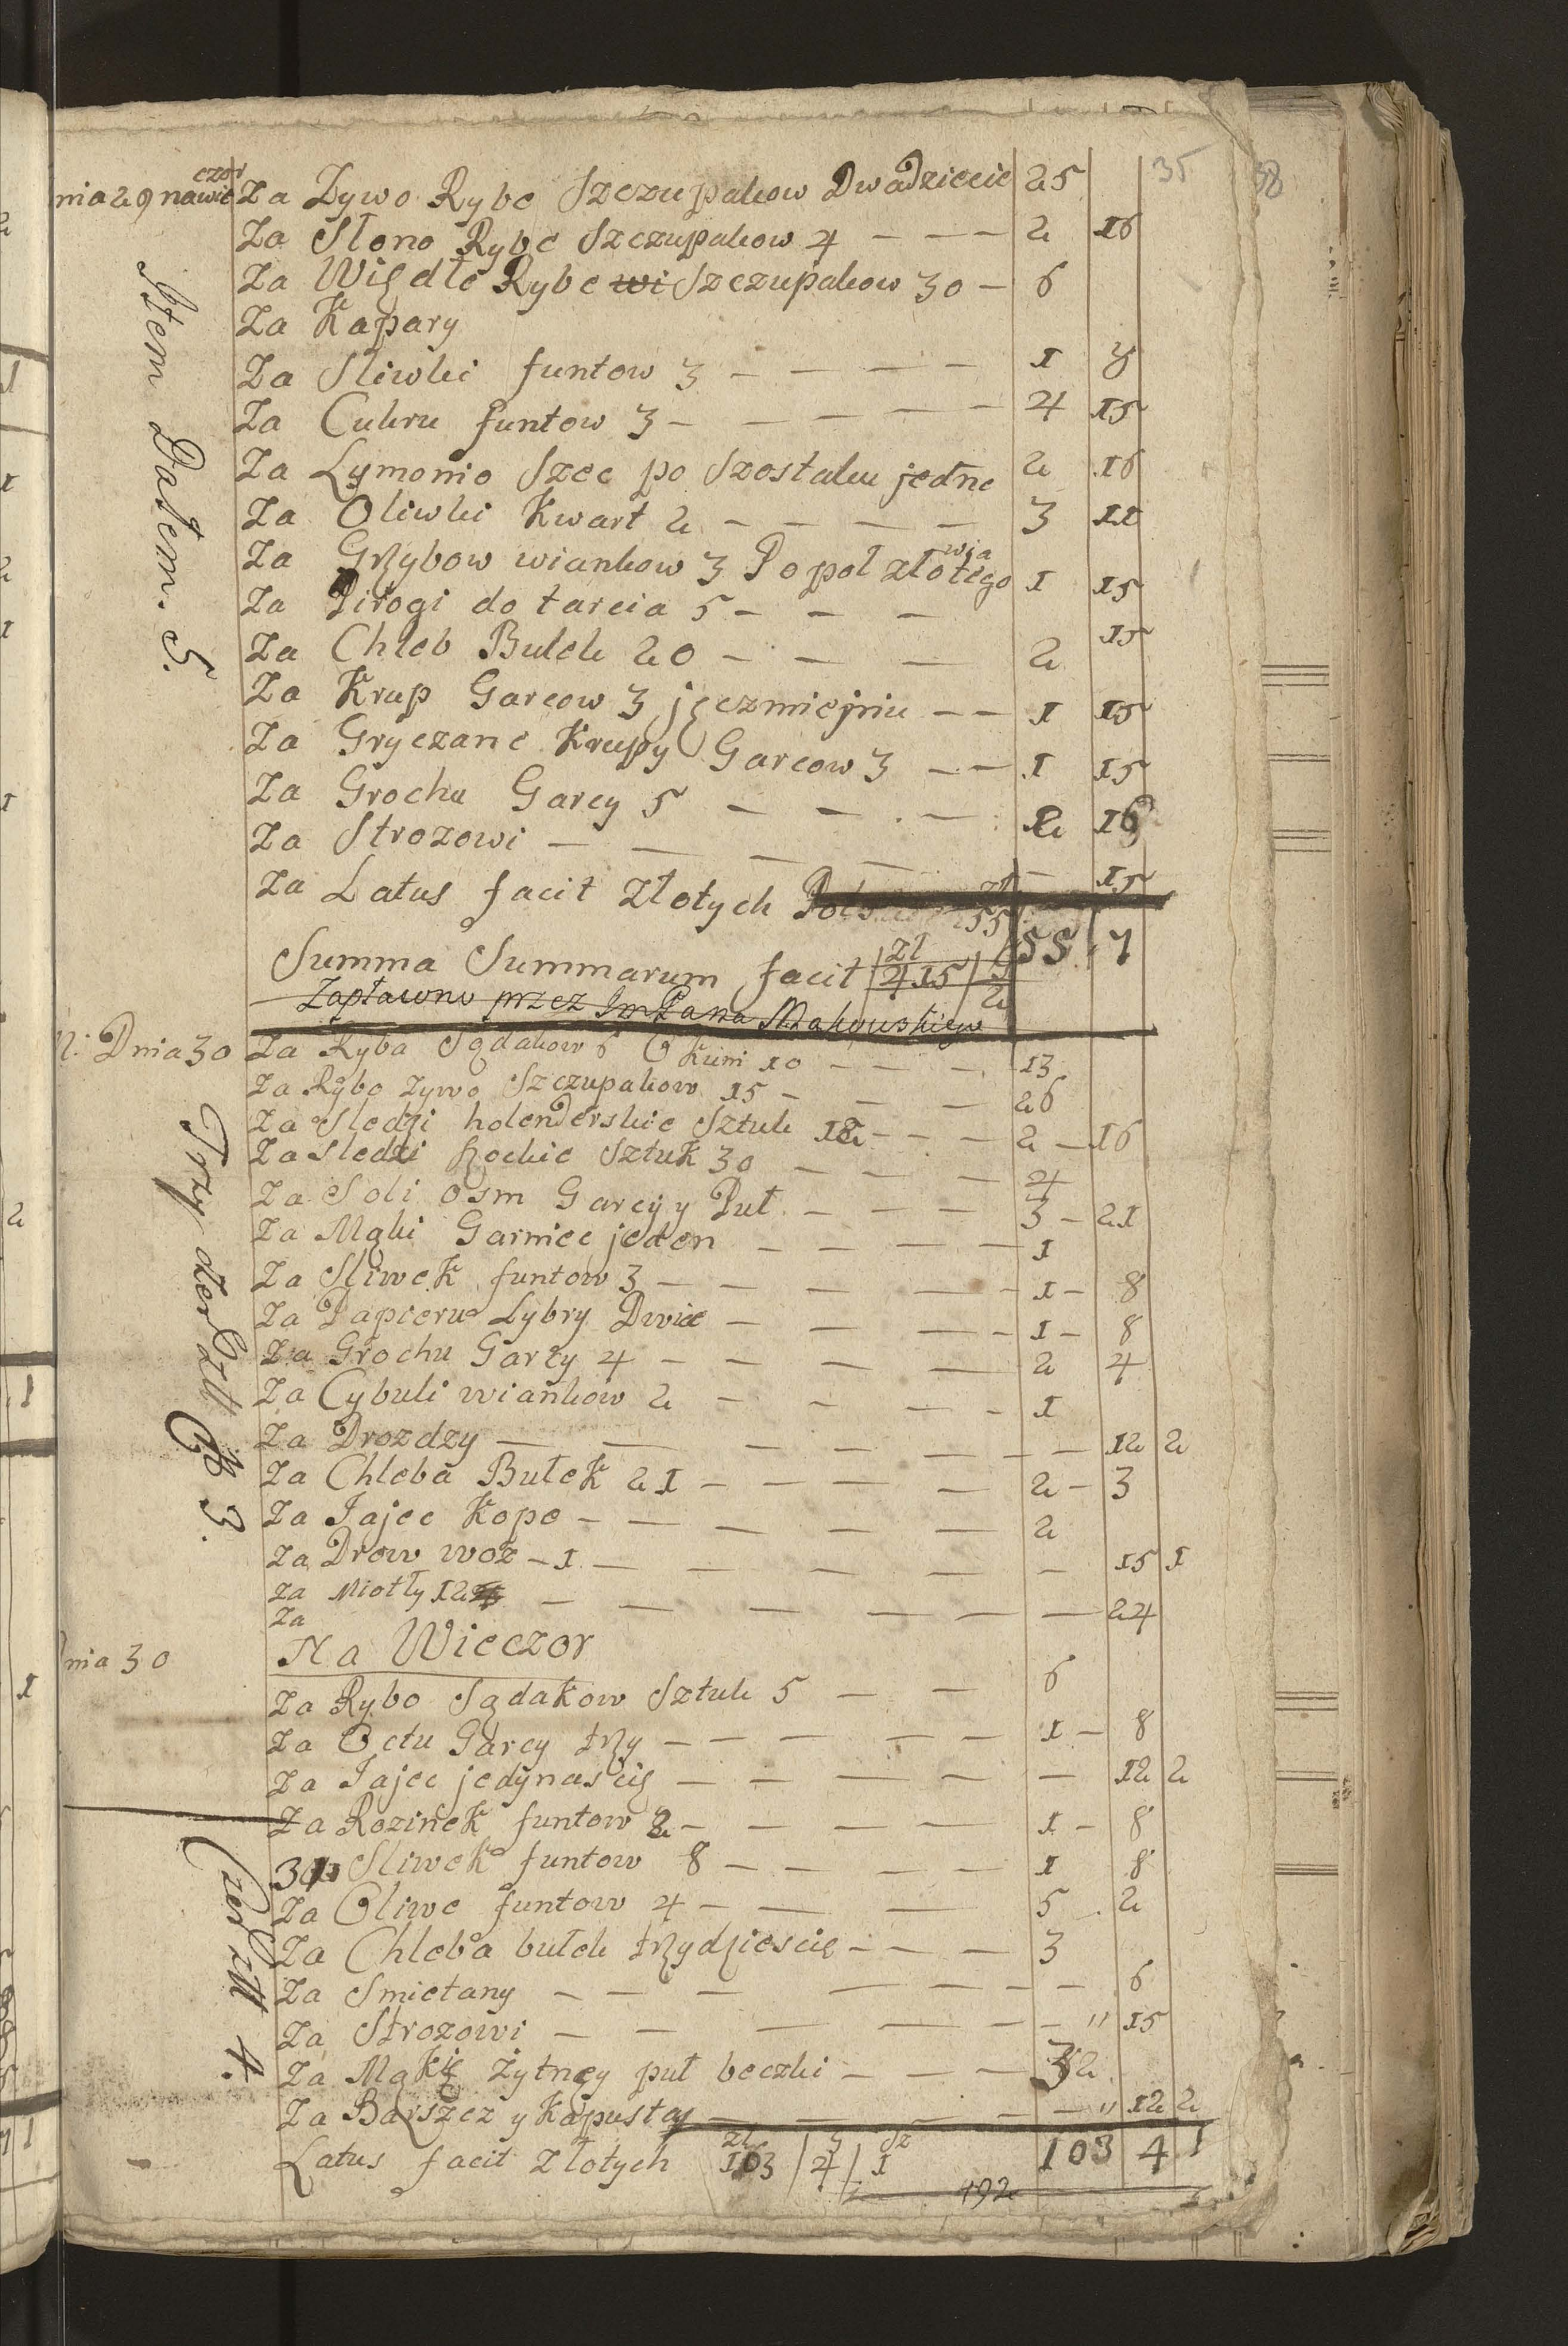 35 38
nia 29 nawie czor Za Zywo Rybe Szczupakow Dwadziecie 25
Za Słono Rybe Szczupakow 4 — — — 2 16
Za Więdłe Rybe wi Szczupakow 30 — 6
Za Kapary
Za Sliwki funtow 3 — — — — 1 8
Za Cukru funtow 3 — — — — 4 15
Za Lymonio Szec po Szostaku jedne 2 16
Za Oliwki Kwart 2 — — — — 3 11
Za Grzybow wiankow 3 Po poł złotego 1 15
Za Pirogi do tarcia 5 — — — 15
Za Chleb Bulek 20 — — — 2
Za Krup Garcow 3 jęczmiejniu — — 1 15
Za Gryczane Krupy Garcow 3 — — 1 15
Za Grochu Garcy 5 — — — 2 16
Za Strozowi — — — — — 15
Za Latus facit Złotych zł 55
55 7
Summa Summarum facit zł 415 / 2
Zapłacono przez Im Pana Makowskiego
Item Dałem. 5.
Dnia 30 Za Ryba Sędakow 6 Okuni 10 — — — 13
Za Rybo zywo Szczupakow 15 — — — 26
Za Sledzi holenderskie Sztuk 12 — — — 2 — 16
Za Sledzi Sztuk 30 — — — 4
Za Soli osm Garcy y Puł — — — 3 — 21
Za Mąki Garniec jeden — — — — 1
Za Sliwek funtow 3 — — — — 1 — 8
Za Papieru Lybry Dwie — — — — 1 — 8
Za Grochu Garcy 4 — — — — 2 4
Za Cybuli wiankow 2 — — — — 1
Za Drozdzy — — — — — — — 12 2
Za Chleba Bułek 21 — — — — 2 — 3
Za Jajec Kope — — — — — 2
Za Drow woz — 1 — — — — — — 15 1
Za Miotły 12 — — — — — — 24
Za
Na Wieczor
nia 30
Za Rybo Sędakow Sztuk 5 — — 6
Za Octu Garcy trzy — — — — — 1 — 8
Za Jajec jedynascię — — — — — 12 2
Za Rozinek funtow 2 — — — — 1 — 8
Sliwek funtow 8 — — — — 1 8
Za Oliwe funtow 4 — — — 5 2
Za Chleba bułek trzydziescie — — — 3
Za Smietany — — — — — — — 6
Za Strozowi — — — — — — " 15
Za Mąkię Zytnęy puł beczki — — — 32
Za Barszcz y Kapusta — — — — — " 12 2
Latus facit Złotych zł 103 / g 4 / sz 1 103 4 1